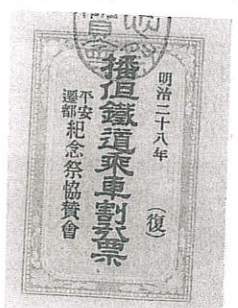 明治二十八年
(復)
播但鐵道乘車割引票
平安
遷都
紀念祭協賛會